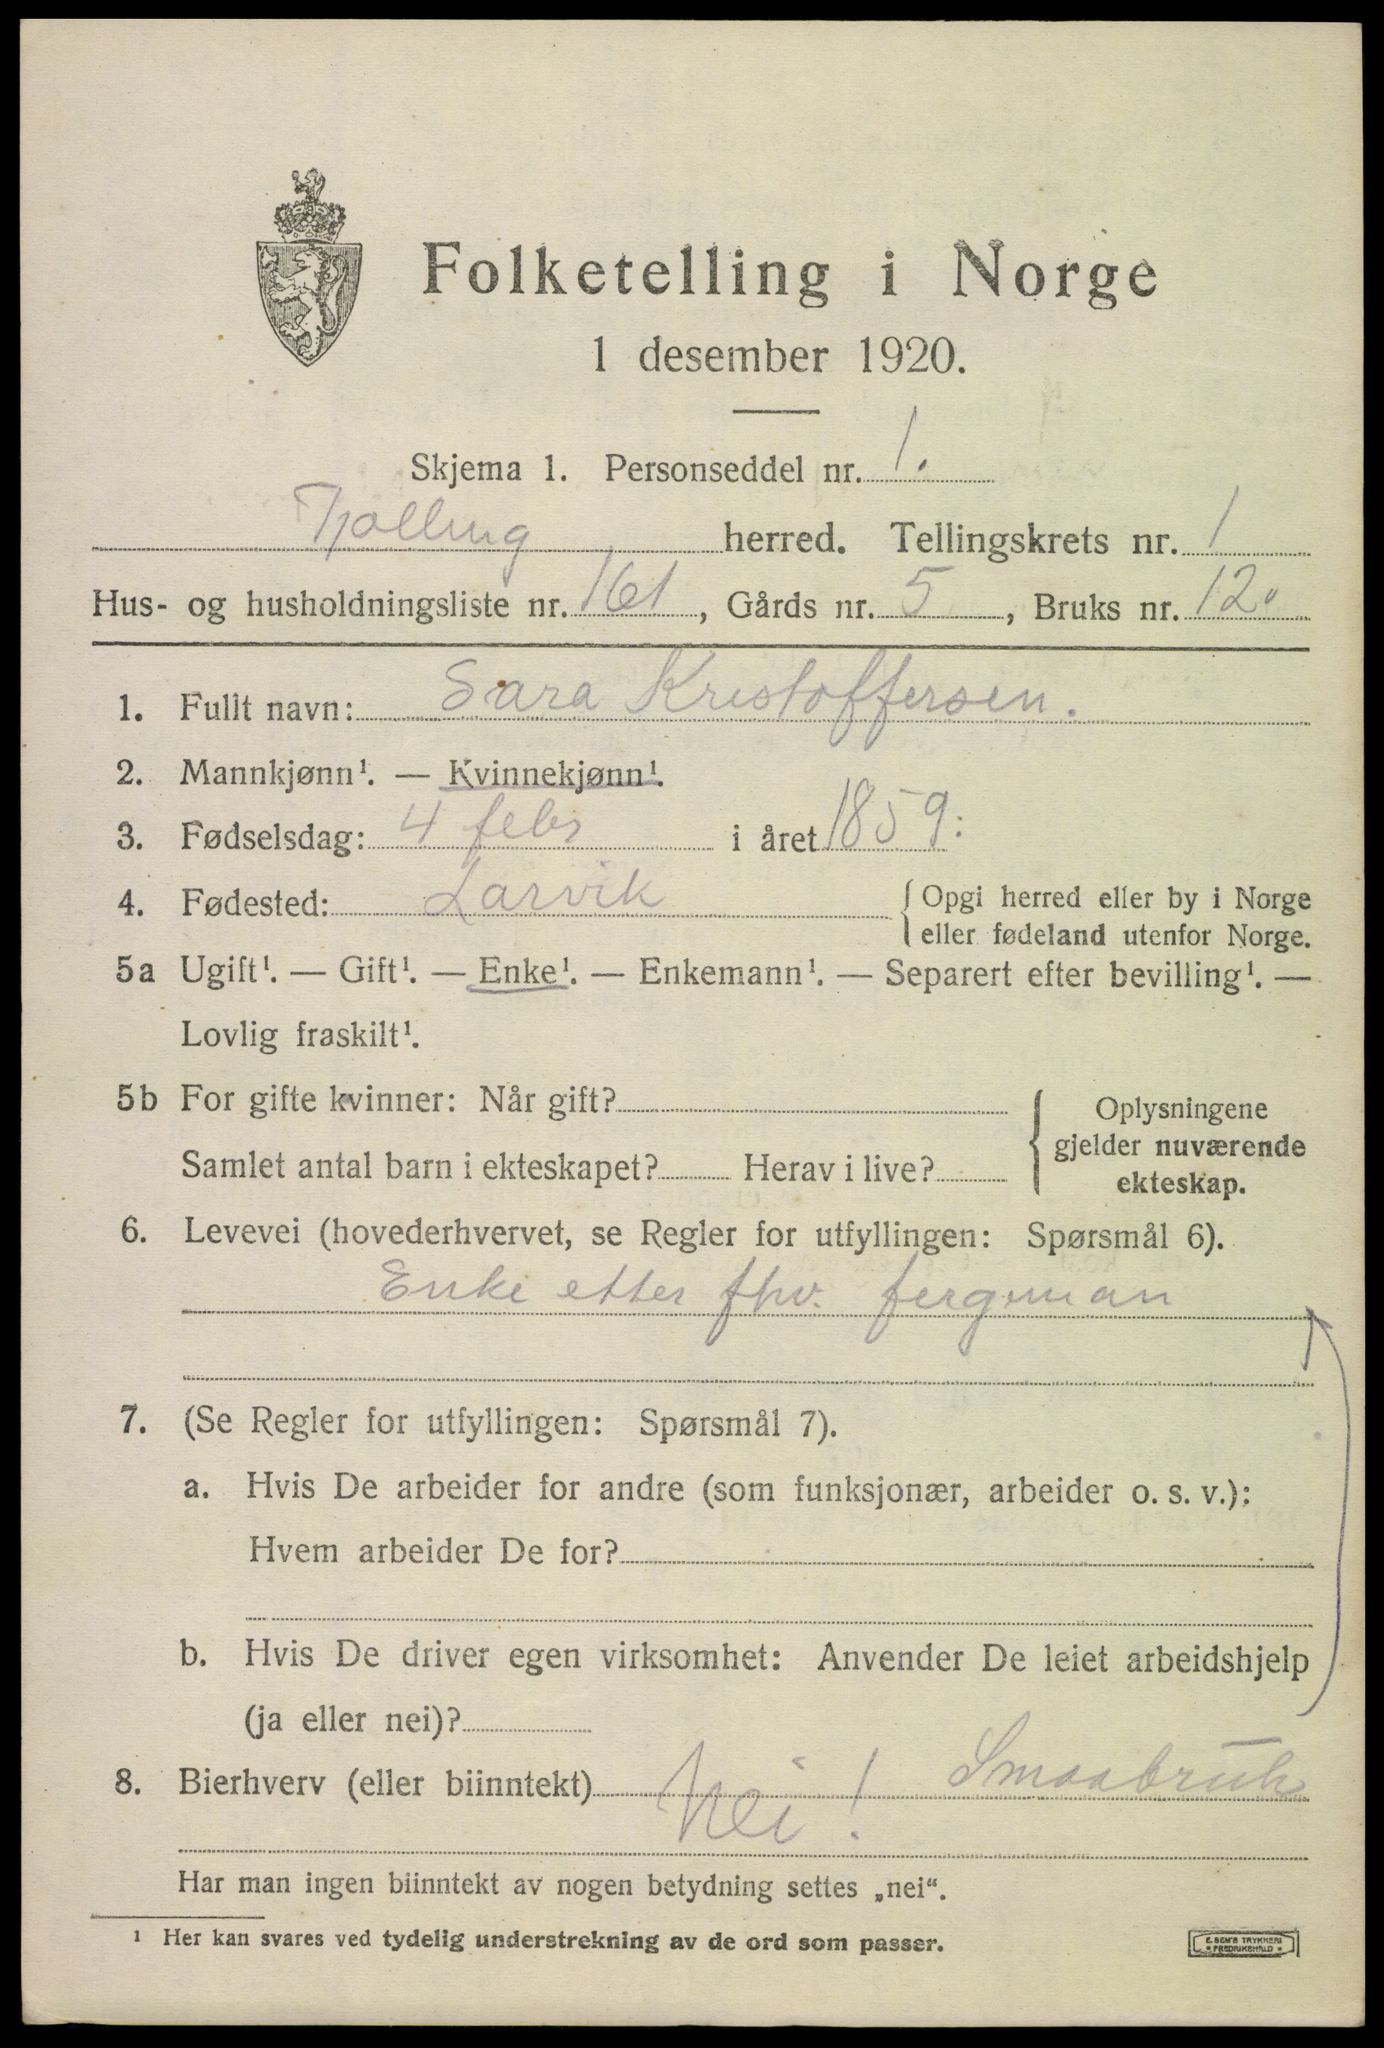 Folketelling i Norge
1 desember 1920.
Skjema 1. Personseddel nr. 1.
Tjølling herred. Tellingskrets nr. 1
Hus- og husholdningsliste nr. 161, Gårds nr. 5, Bruks nr. 12.
1. Fullt navn: Sara Kristoffersen.
2. Mannkjønn¹. — Kvinnekjønn¹.
3. Fødselsdag: 4 febr i året 1859:
4. Fødested: Larvik { Opgi herred eller by i Norge
eller fødeland utenfor Norge.
5a Ugift¹. — Gift¹. — Enke¹. — Enkemann¹. — Separert efter bevilling¹. —
Lovlig fraskilt¹.
5b For gifte kvinner: Når gift? { Oplysningene
gjelder nuværende
Samlet antal barn i ekteskapet? Herav i live?
ekteskap.
6. Levevei (hovederhvervet, se Regler for utfyllingen: Spørsmål 6).
Enke etter fhv. fergeman
7. (Se Regler for utfyllingen: Spørsmål 7).
a. Hvis De arbeider for andre (som funksjonær, arbeider o. s. v.):
Hvem arbeider De for?
b. Hvis De driver egen virksomhet: Anvender De leiet arbeidshjelp
(ja eller nei)?
8. Bierhverv (eller biinntekt) Nei! Smaabruk
Har man ingen biinntekt av nogen betydning settes „nei“.
¹ Her kan svares ved tydelig understrekning av de ord som passer.
E. SEM'S TRYKKERI
FREDRIKSHALD